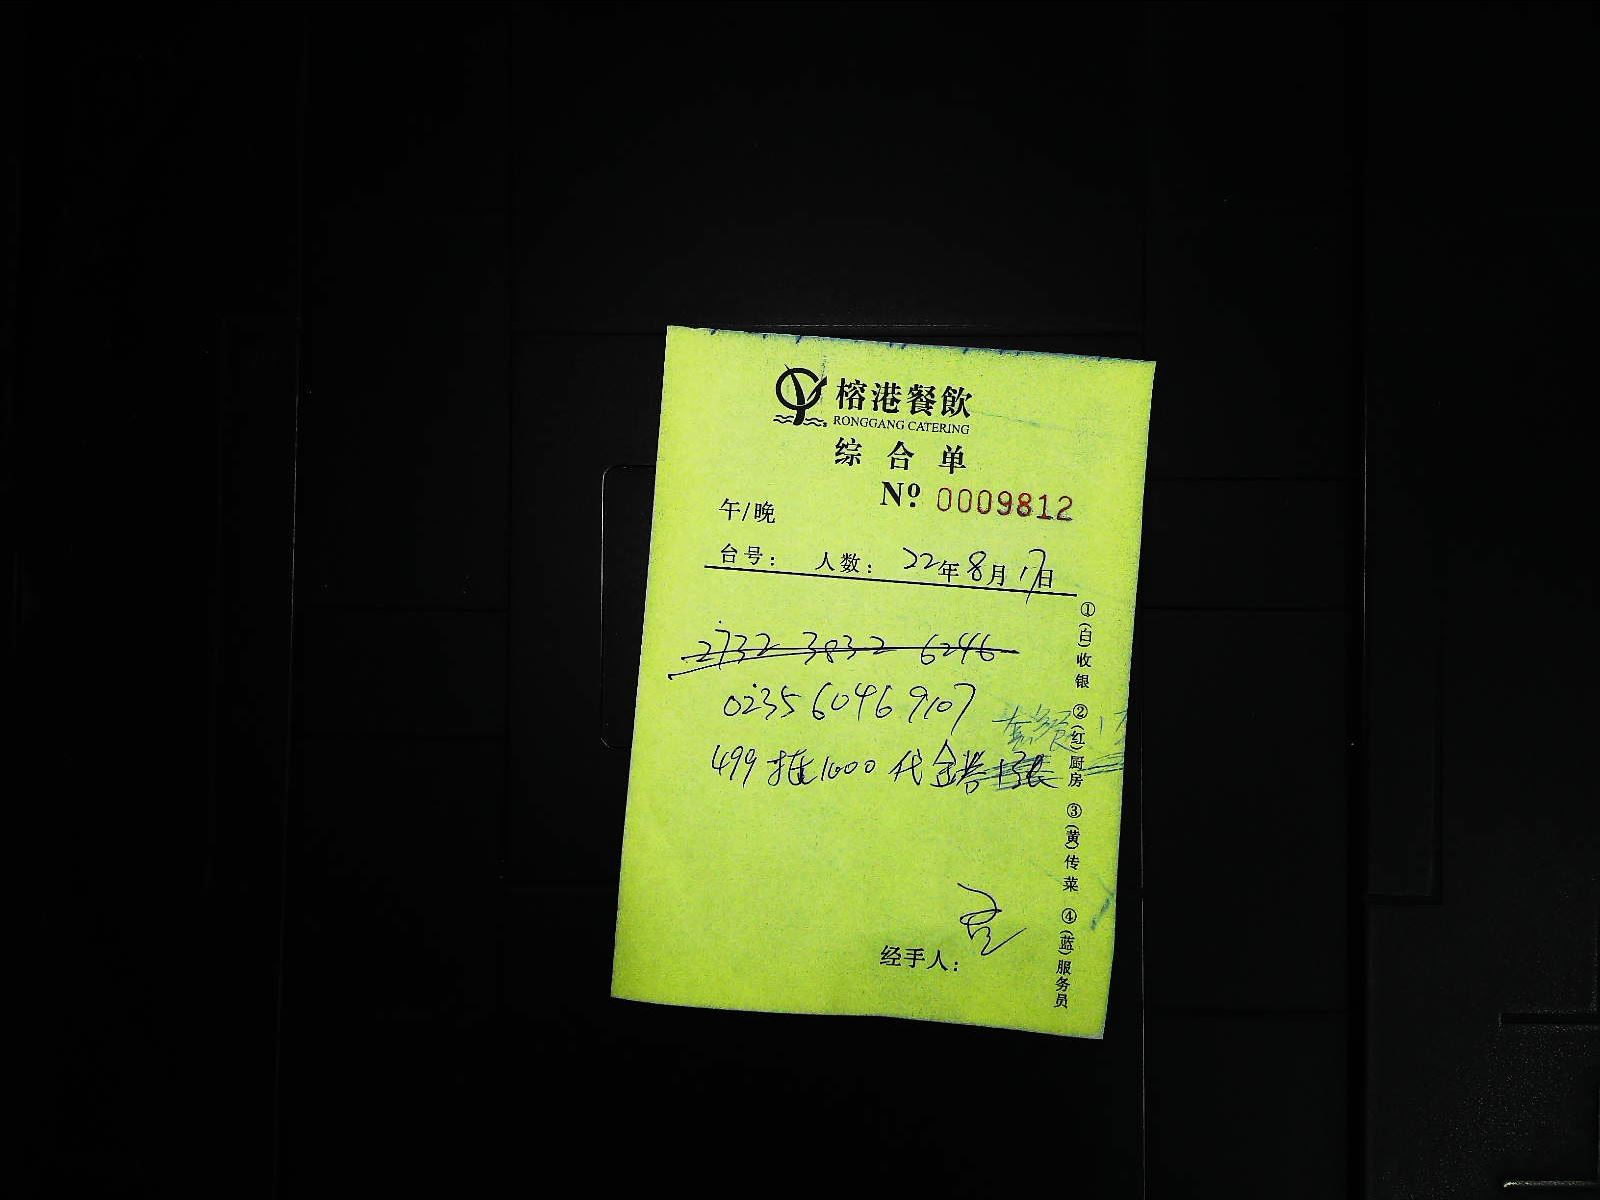 榕港餐飲
RONGGANG CATERING
综合单
No. 0009812
午/晚
台号: 人数: 22年8月17日
2732 3832 6246
0235 6046 9107
499 推1000 代金券 1张
套餐
经手人:
①(白)收银 ②(红)厨房 ③(黄)传菜 ④(蓝)服务员